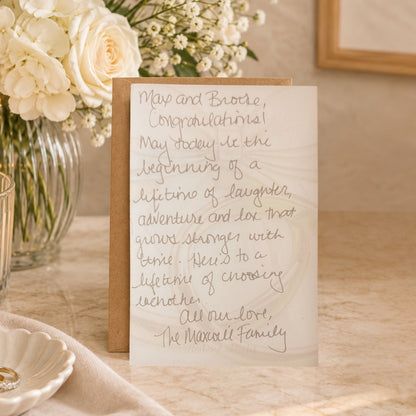 Max and Brooke,
Congratulations!
May today be the
beginning of a
lifetime of laughter,
adventure and love that
grows stronger with
time. Here's to a
lifetime of choosing
eachother.
All our love,
The Maxwell Family